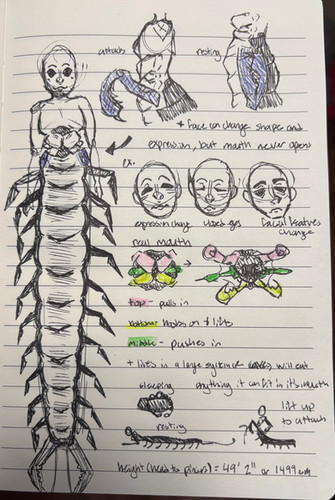 attack
resting
* face can change shape and
expression, but mouth never opens
ex.
expression change
closed eyes
facial features
change
real mouth
top - pulls in
bottom - holds on & lifts
middle - pushes in
+ lives in a large system of caves, will eat
anything it can fit in its mouth
sleeping
lift up
to attack
resting
height (head to pincers) = 49' 2" or 1499 cm